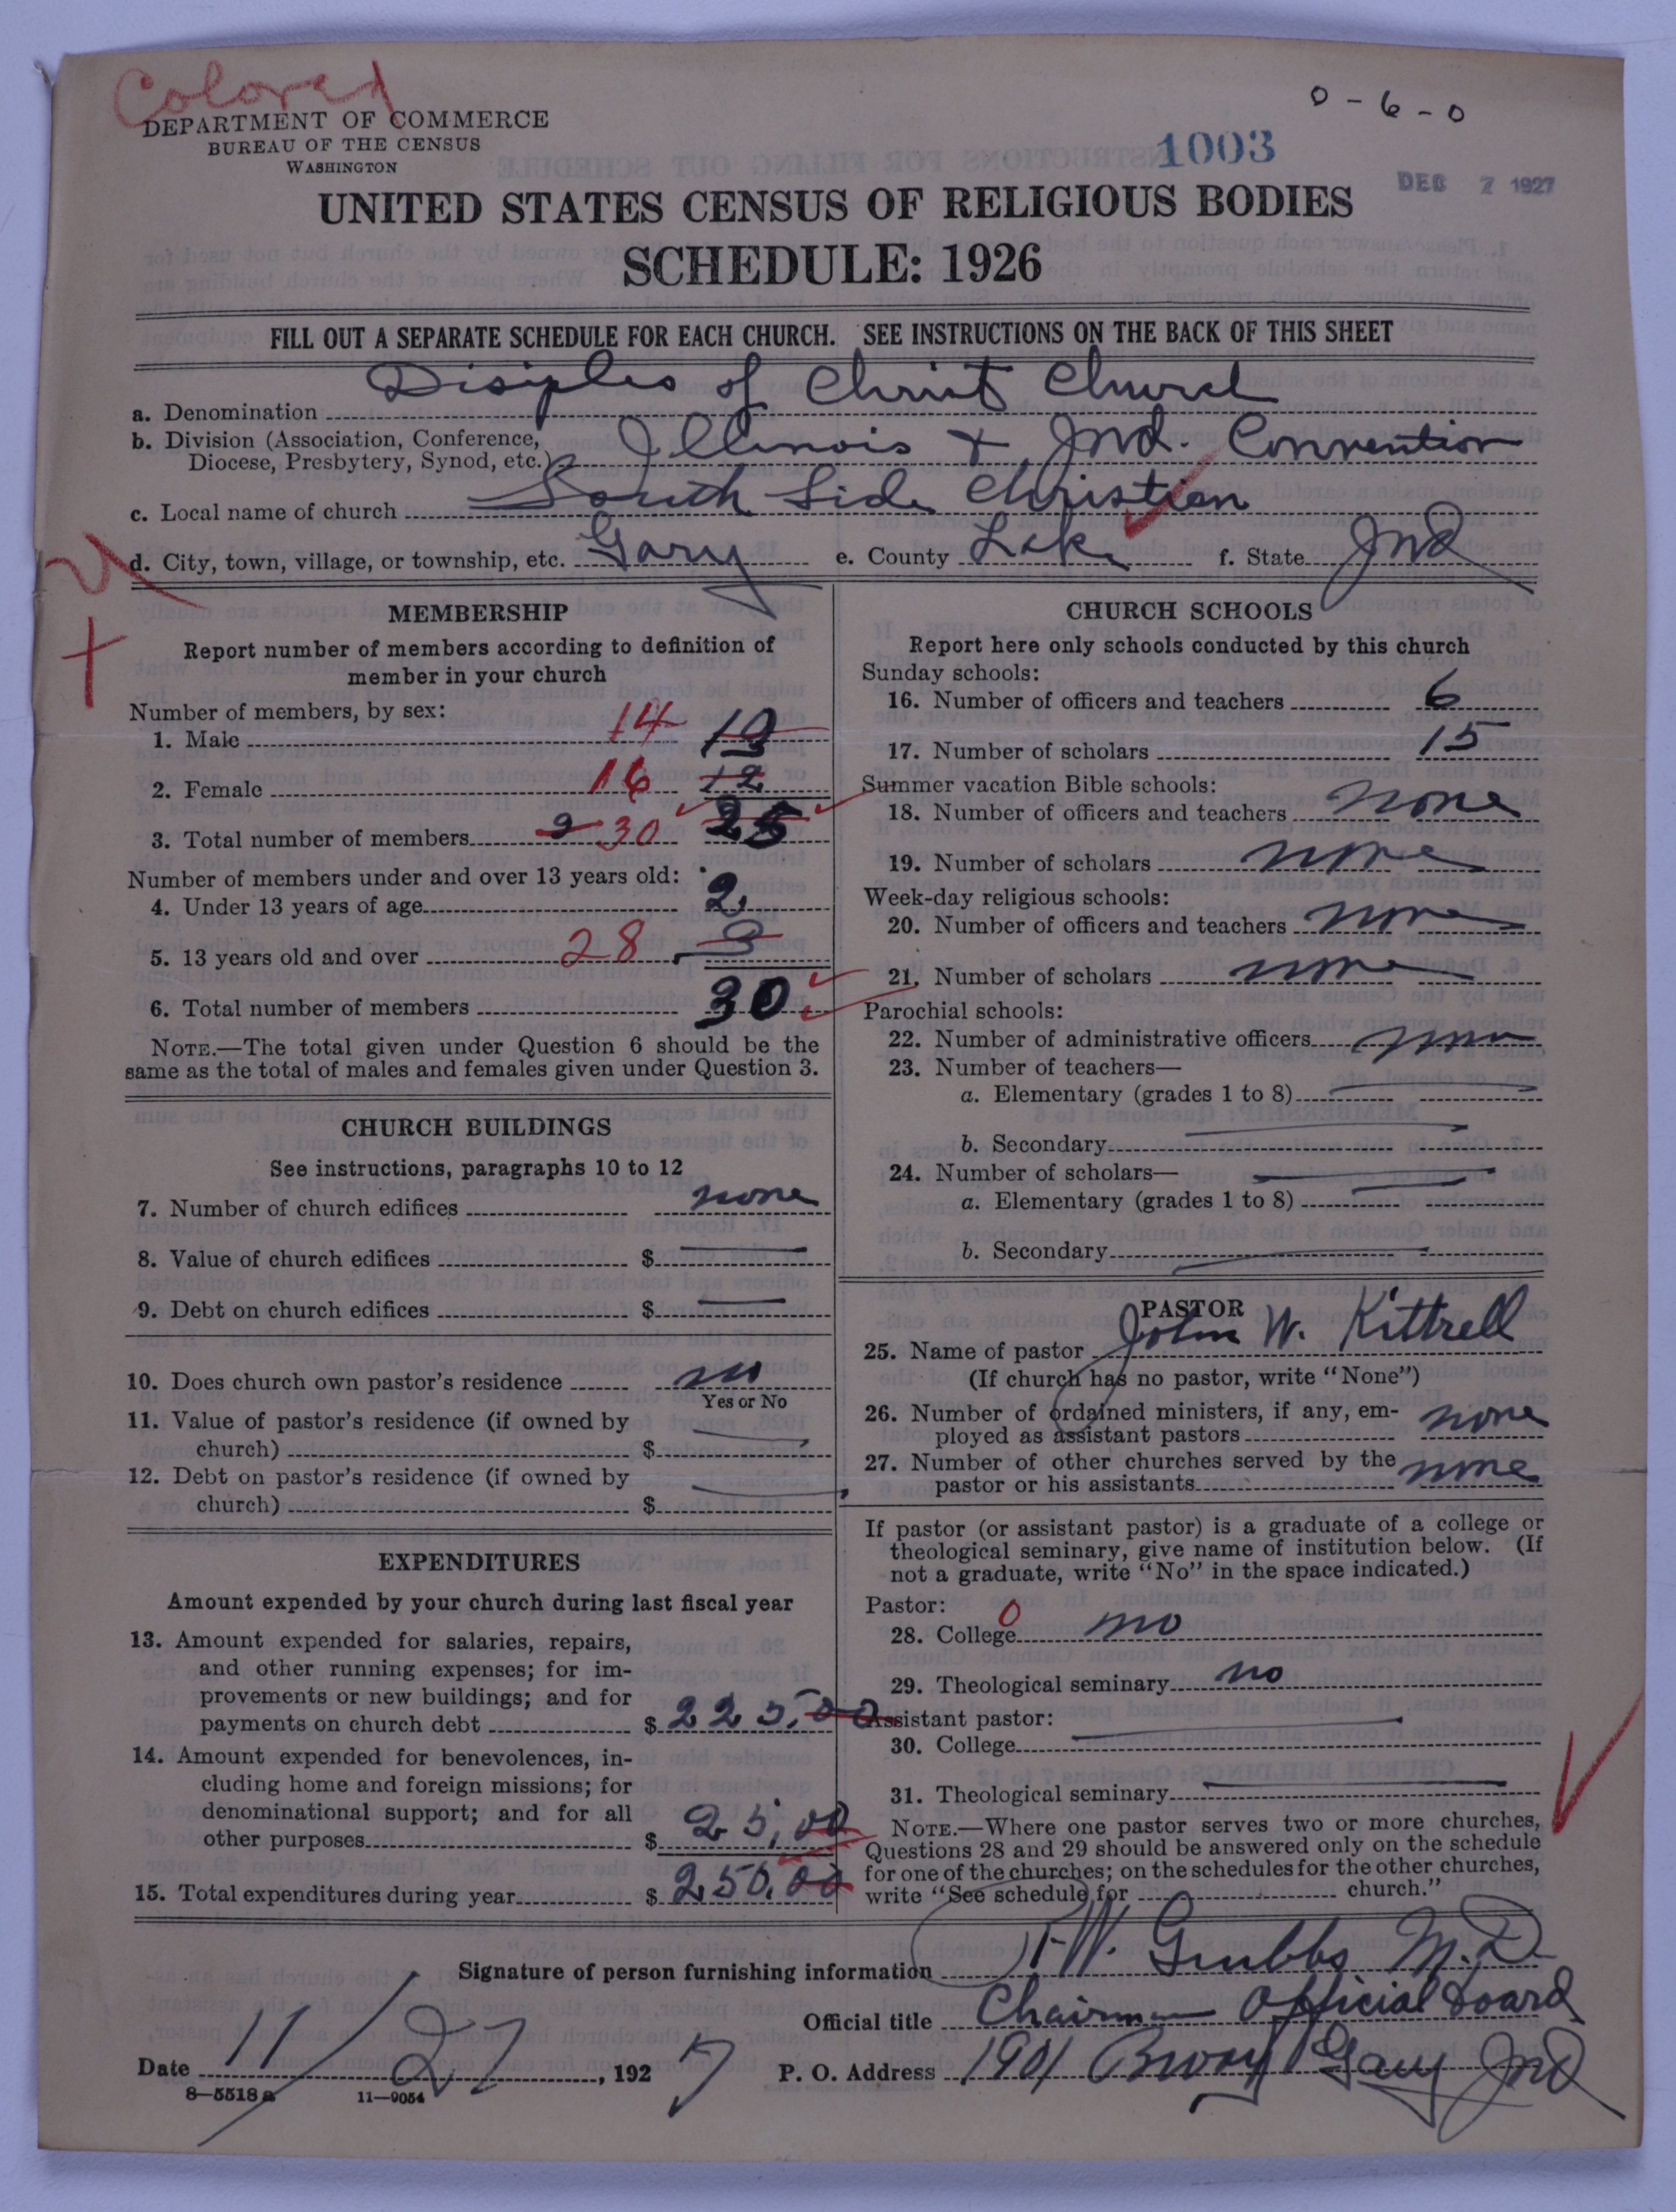 Colored
0 - 6 - 0
DEPARTMENT OF COMMERCE
BUREAU OF THE CENSUS
WASHINGTON
1003
DEC 7 1927
UNITED STATES CENSUS OF RELIGIOUS BODIES
SCHEDULE: 1926
FILL OUT A SEPARATE SCHEDULE FOR EACH CHURCH. SEE INSTRUCTIONS ON THE BACK OF THIS SHEET
a. Denomination Disiples of Christ Church
b. Division (Association, Conference,
Diocese, Presbytery, Synod, etc.) Illinois + Ind. Convention
c. Local name of church South Side Christian
d. City, town, village, or township, etc. Gary e. County Lake f. State Ind
MEMBERSHIP
Report number of members according to definition of
member in your church
Number of members, by sex:
1. Male 14 13
2. Female 16 12
3. Total number of members 30 25
Number of members under and over 13 years old:
4. Under 13 years of age 2
5. 13 years old and over 28
6. Total number of members 30
NOTE.—The total given under Question 6 should be the
same as the total of males and females given under Question 3.
CHURCH BUILDINGS
See instructions, paragraphs 10 to 12
7. Number of church edifices none
8. Value of church edifices $
9. Debt on church edifices $
10. Does church own pastor's residence no
Yes or No
11. Value of pastor's residence (if owned by
church) $
12. Debt on pastor's residence (if owned by
church) $
EXPENDITURES
Amount expended by your church during last fiscal year
13. Amount expended for salaries, repairs,
and other running expenses; for im-
provements or new buildings; and for
payments on church debt $ 225.00
14. Amount expended for benevolences, in-
cluding home and foreign missions; for
denominational support; and for all
other purposes $ 25.00
15. Total expenditures during year $ 250.00
CHURCH SCHOOLS
Report here only schools conducted by this church
Sunday schools:
16. Number of officers and teachers 6
17. Number of scholars 15
Summer vacation Bible schools:
18. Number of officers and teachers none
19. Number of scholars none
Week-day religious schools:
20. Number of officers and teachers none
21. Number of scholars none
Parochial schools:
22. Number of administrative officers none
23. Number of teachers—
a. Elementary (grades 1 to 8)
b. Secondary
24. Number of scholars—
a. Elementary (grades 1 to 8)
b. Secondary
PASTOR
25. Name of pastor John W. Kittrell
(If church has no pastor, write "None")
26. Number of ordained ministers, if any, em-
ployed as assistant pastors none
27. Number of other churches served by the
pastor or his assistants none
If pastor (or assistant pastor) is a graduate of a college or
theological seminary, give name of institution below. (If
not a graduate, write "No" in the space indicated.)
Pastor:
28. College 0 no
29. Theological seminary no
Assistant pastor:
30. College
31. Theological seminary
NOTE.—Where one pastor serves two or more churches,
Questions 28 and 29 should be answered only on the schedule
for one of the churches; on the schedules for the other churches,
write "See schedule for church."
Signature of person furnishing information Grubbs M.D.
Official title Chairman Official Board
Date 11/27, 1927 P. O. Address 1901 Bway Gary Ind
8—5518 a 11—9054